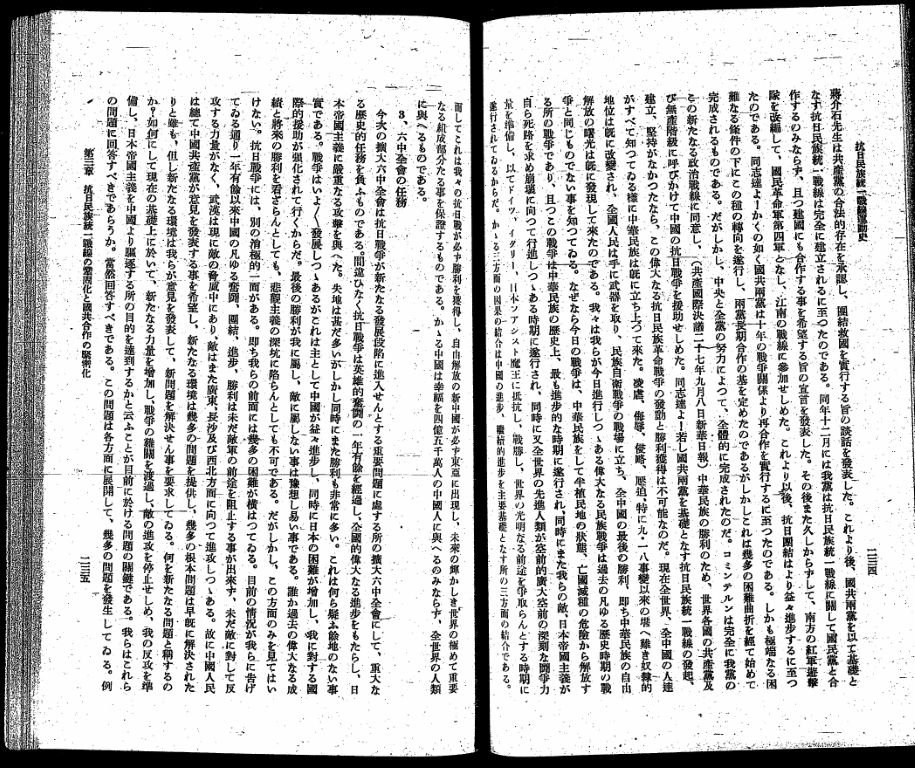 抗日民族統一戰線運動史
一三四
蔣介石先生は共產黨の合法的存在を承認し、團結救國を實行する旨の談話を發表した。これより後、國共兩黨を以て基礎と
なす抗日民族統一戰線は完全に建立されるに至つたのである。同年十二月には我黨は抗日民族統一戰線に關して國民黨と合
作するのみならず、且つ建國にも合作する事を希望する旨の宣言を發表した。その後また久しからずして、南方の紅軍遊擊
隊を改編して、國民革命軍第四軍となし、江南の戰線に參加せしめた。これより以後、抗日團結はより益々進步するに至つ
たのである。同志達よ！かくの如く國共兩黨は十年の戰爭關係より再合作を實行するに至つたのである。しかも極端なる困
難なる條件の下にこの種の轉向を遂行し、兩黨長期合作の基を定めたのであるがしかしこれは幾多の困難曲折を經て始めて
完成されるものである。だがしかし、中央と全黨の努力によつて、全體的に完成されたのだ。コミンテルンは完全に我黨の
この新たなる政治戰線に同意し、（共產國際決議二十七年九月八日新華日報）中華民族の勝利のため、世界各國の共產黨及
び無產階級に呼びかけて中國の抗日戰爭を援助せしめた。同志達よ！若し國共兩黨を基礎となす抗日民族統一戰線の發起、
建立、堅持がなかつたなら、この偉大なる抗日民族革命戰爭の發動と勝利獲得は不可能なのだ。現在全世界、全中國の人達
がすべて知つてゐる樣に中華民族は旣に立ち上つて來た。凌虐、侮辱、侵略、壓迫、特に九・一八事變以來の堪へ難き奴隸的
地位は旣に改變され、全國人民は手に武器を取り、民族自衛戰爭の戰場に立ち、全中國の最後の勝利、即ち中華民族の自由
解放の曙光は旣に發現して來たのである。我々は我らが今日進行しつゝある偉大なる民族戰爭は過去の凡ゆる歷史時期の戰
爭と同じものでない事を知つてゐる。なぜなら今日の戰爭は、中華民族をして半植民地の狀態、亡國滅種の危險から解放す
る所の戰爭であり、且つこの戰爭は中華民族の歷史上、最も進步的な時期に遂行され、同時にまた我らの敵、日本帝國主義が
自ら死路を求め崩壞に向つて行進しつゝある時期に遂行され、同時に又全世界の先進人類が空前的廣大空前の深刻な鬪爭力
量を準備し、以てドイツ、イタリー、日本ファシスト魔王に抵抗し、戰勝し、世界の光明なる前途を爭取らんとする時期に
遂行されてゐるからだ。かゝる三方面の因果の結合は中國の進步、繼續的進步を主要基礎となす所の三方面の結合である。
而してこれは我々の抗日戰が必ず勝利を獲得し、自由解放の新中國が必ず東亞に出現し、未來の輝かしき世界の極めて重要
なる組成部分たる事を保證するものである。かゝる中國は幸福を四億五千萬人の中國人に與へるのみならず、全世界の人類
に與へるものである。
3、六中全會の任務
今次の擴大六中全會は抗日戰爭が新たなる發展段階に進入せんとする重要問題に處する所の擴大六中全會にして、重大な
る歷史的任務を負ふものである。間違ひなく抗日戰爭は英雄的奮鬪の一年有餘を經過し、全國的偉大なる進步をもたらし、日
本帝國主義に嚴重なる攻擊を與へた。失地は甚だ多いがしかし同時にまた勝利も非常に多い。これは何ら疑ふ餘地のない事
實である。戰爭はいよ〳〵發展しつゝあるがこれは主として中國が益々進步し、同時に日本の困難が增加し、我に對する國
際的援助が强化されて行くからだ。最後の勝利が我に屬し、敵に屬しない事は豫想し易い事である。誰か過去の偉大なる成
績と將來の勝利を看ざらんとしても、悲觀主義の深坑に陷らんとしても不可である。だがしかし、この方面のみを見てはい
けない。抗日戰爭には、別の消極的一面がある。即ち我らの前面には幾多の困難が橫はつてゐる。目前の情況が我らに告げ
てゐる通り一年有餘以來中國の凡ゆる奮鬪、團結、進步、勝利は未だ敵軍の前途を阻止する事が出來ず、未だ敵に對して反
攻する力量がなく、武漢は現に敵の脅威中にあり、敵はまた廣東、長沙及び西北方面に向つて進攻しつゝある。故に中國人民
は總て中國共產黨が意見を發表する事を希望し、新たなる環境は幾多の問題を提供し、幾多の根本問題は早く旣に解決された
りと雖も、但し新たなる環境は我らが意見を發表して、新問題を解決せん事を要求してゐる。何を新たなる問題と稱するの
か？如何にして現在の基礎上に於いて、新たなる力量を增加し、戰爭の難關を渡過し、敵の進攻を停止せしめ、我の反攻を準
備し、日本帝國主義を中國より驅逐する所の目的を達到するかと云ふことが目前に於ける問題の關鍵である。我らはこれら
の問題に回答すべきであらうか。當然回答すべきである。この問題は各方面に展開し、幾多の問題を發生してゐる。例
第三章　抗日民族統一戰線の鞏固化と國共合作の緊密化
一三五